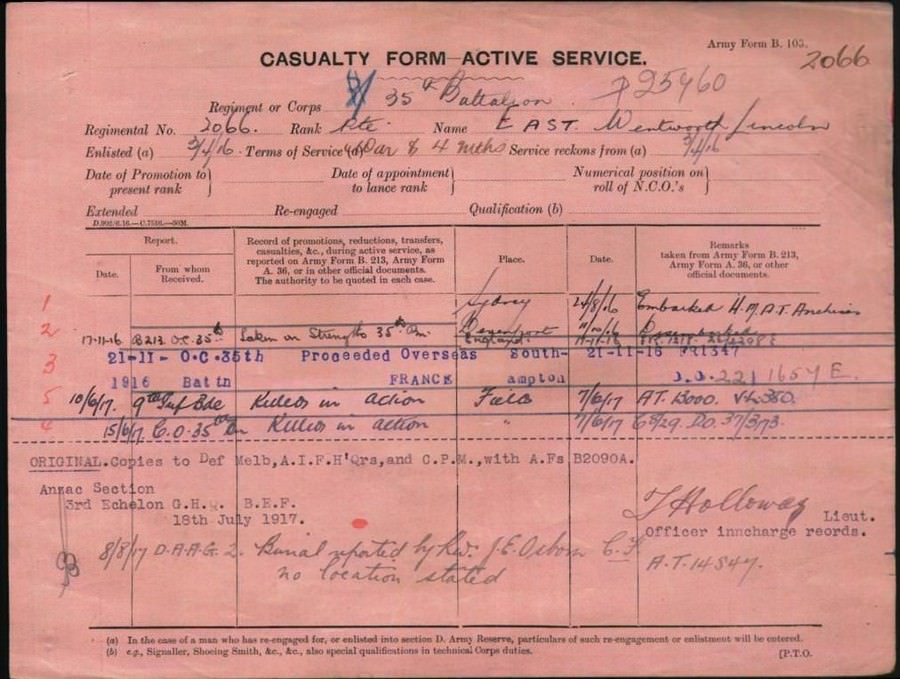 Army Form B. 103.
2066
CASUALTY FORM—ACTIVE SERVICE.
Regiment or Corps 35th Battalion P25460
Regimental No. 2066. Rank Pte. Name EAST. Wentworth Lincoln
Enlisted (a) 3/4/16 Terms of Service (a) War & 4 mths Service reckons from (a) 3/4/16
Date of Promotion to present rank } Date of appointment to lance rank } Numerical position on roll of N.C.O.'s }
Extended Re-engaged Qualification (b)
D.992/6.16.—C.7516.—50M.
Report.
Date. From whom Received.
Record of promotions, reductions, transfers, casualties, &c., during active service, as reported on Army Form B. 213, Army Form A. 36, or in other official documents. The authority to be quoted in each case.
Place.
Date.
Remarks taken from Army Form B. 213, Army Form A. 36, or other official documents.
1 Sydney 24/8/16 Embarked H.M.A.T. Anchises
2 Devonport 11/10/16 Disembarked
17-11-16 B213 O.C. 35th Taken on Strength 35th Bn. England.
3 21-11- O.C.35th Proceeded Overseas South- 21-11-16 FR1347
1916 Battn FRANCE ampton 1657 E.
5 10/6/17. 9th Inf Bde Killed in action Field 7/6/17 A.T. 13000.
4 15/6/17. C.O. 35th Bn Killed in action " 7/6/17 D.O. 37/373.
ORIGINAL.Copies to Def Melb,A.I.F.H'Qrs,and C.P.M.,with A.Fs B2090A.
Anzac Section
3rd Echelon G.H.Q. B.E.F.
18th July 1917.
T Holloway Lieut.
Officer inncharge reords.
8/8/17 D.A.A.G. 2. Burial reported by Rev. J.E. Osborn C.F.
no location stated
A.T. 14547.
(a) In the case of a man who has re-engaged for, or enlisted into section D. Army Reserve, particulars of such re-engagement or enlistment will be entered.
(b) e.g., Signaller, Shoeing Smith, &c., &c., also special qualifications in technical Corps duties.
[P.T.O.